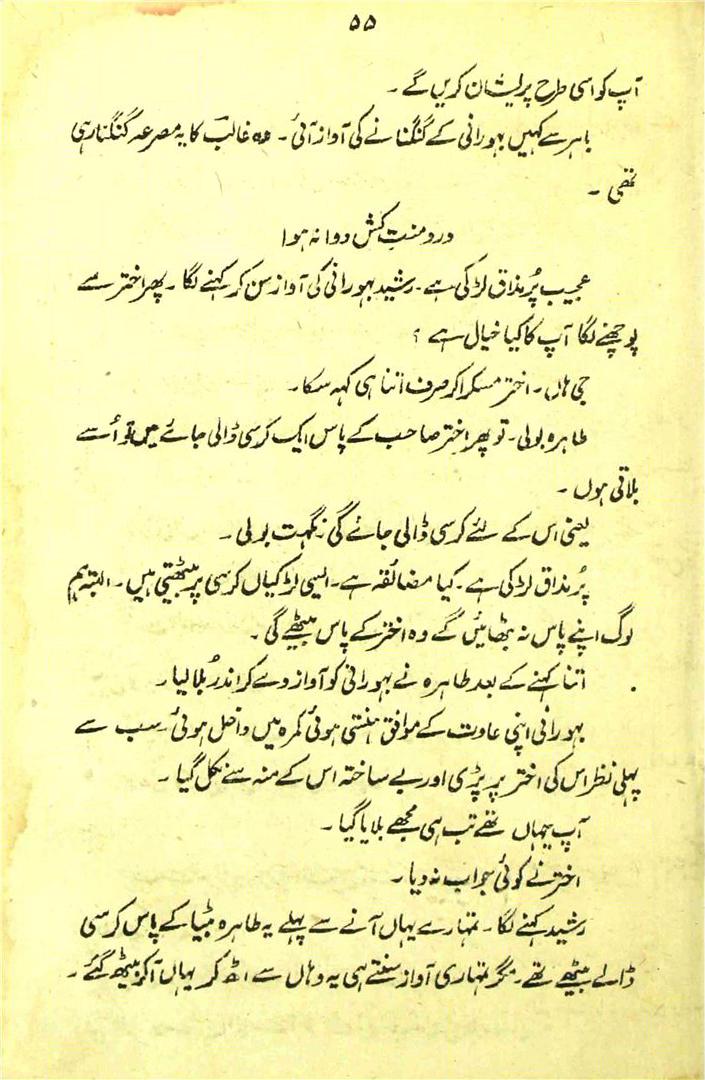 ۵۵
آپ کو اسی طرح پریشان کریں گے ۔
باہر سے کہیں بہورانی کے گنگنانے کی آواز آئی ۔ وہ غالبؔ کا یہ مصرعہ گنگنا رہی
تھی ۔
درد منتِ کش دوا نہ ہوا
عجیب پُر مذاق لڑکی ہے ۔ رشید بہورانی کی آواز سن کر کہنے لگا ۔ پھر اختر سے
پوچھنے لگا آپ کا کیا خیال ہے ؟
جی ہاں ۔ اختر مسکرا کر صرف اتنا ہی کہہ سکا ۔
طاہرہ بولی ۔ تو پھر اختر صاحب کے پاس ایک کرسی ڈالی جائے میں تو اُسے
بلاتی ہوں ۔
یعنی اس کے لئے کرسی ڈالی جائے گی ۔ نگہت بولی ۔
پُر مذاق لڑکی ہے ۔ کیا مضائقہ ہے ۔ ایسی لڑکیاں کرسی پر بیٹھتی ہیں ۔ البتہ ہم
لوگ اپنے پاس نہ بٹھائیں گے وہ اختر کے پاس بیٹھے گی ۔
اتنا کہنے کے بعد طاہرہ نے بہورانی کو آواز دے کر اندر بُلا لیا ۔
بہورانی اپنی عادت کے موافق ہنستی ہوئی کمرہ میں داخل ہوئی ۔ سب سے
پہلی نظر اس کی اختر پر پڑی اور بے ساختہ اس کے منہ سے نکل گیا ۔
آپ یہاں تھے تب ہی مجھے بلایا گیا ۔
اختر نے کوئی جواب نہ دیا ۔
رشید کہنے لگا ۔ تمہارے یہاں آنے سے پہلے یہ طاہرہ بٹیا کے پاس کرسی
ڈالے بیٹھے تھے ۔ مگر تمہاری آواز سنتے ہی یہ وہاں سے اٹھ کر یہاں آکر بیٹھ گئے ۔